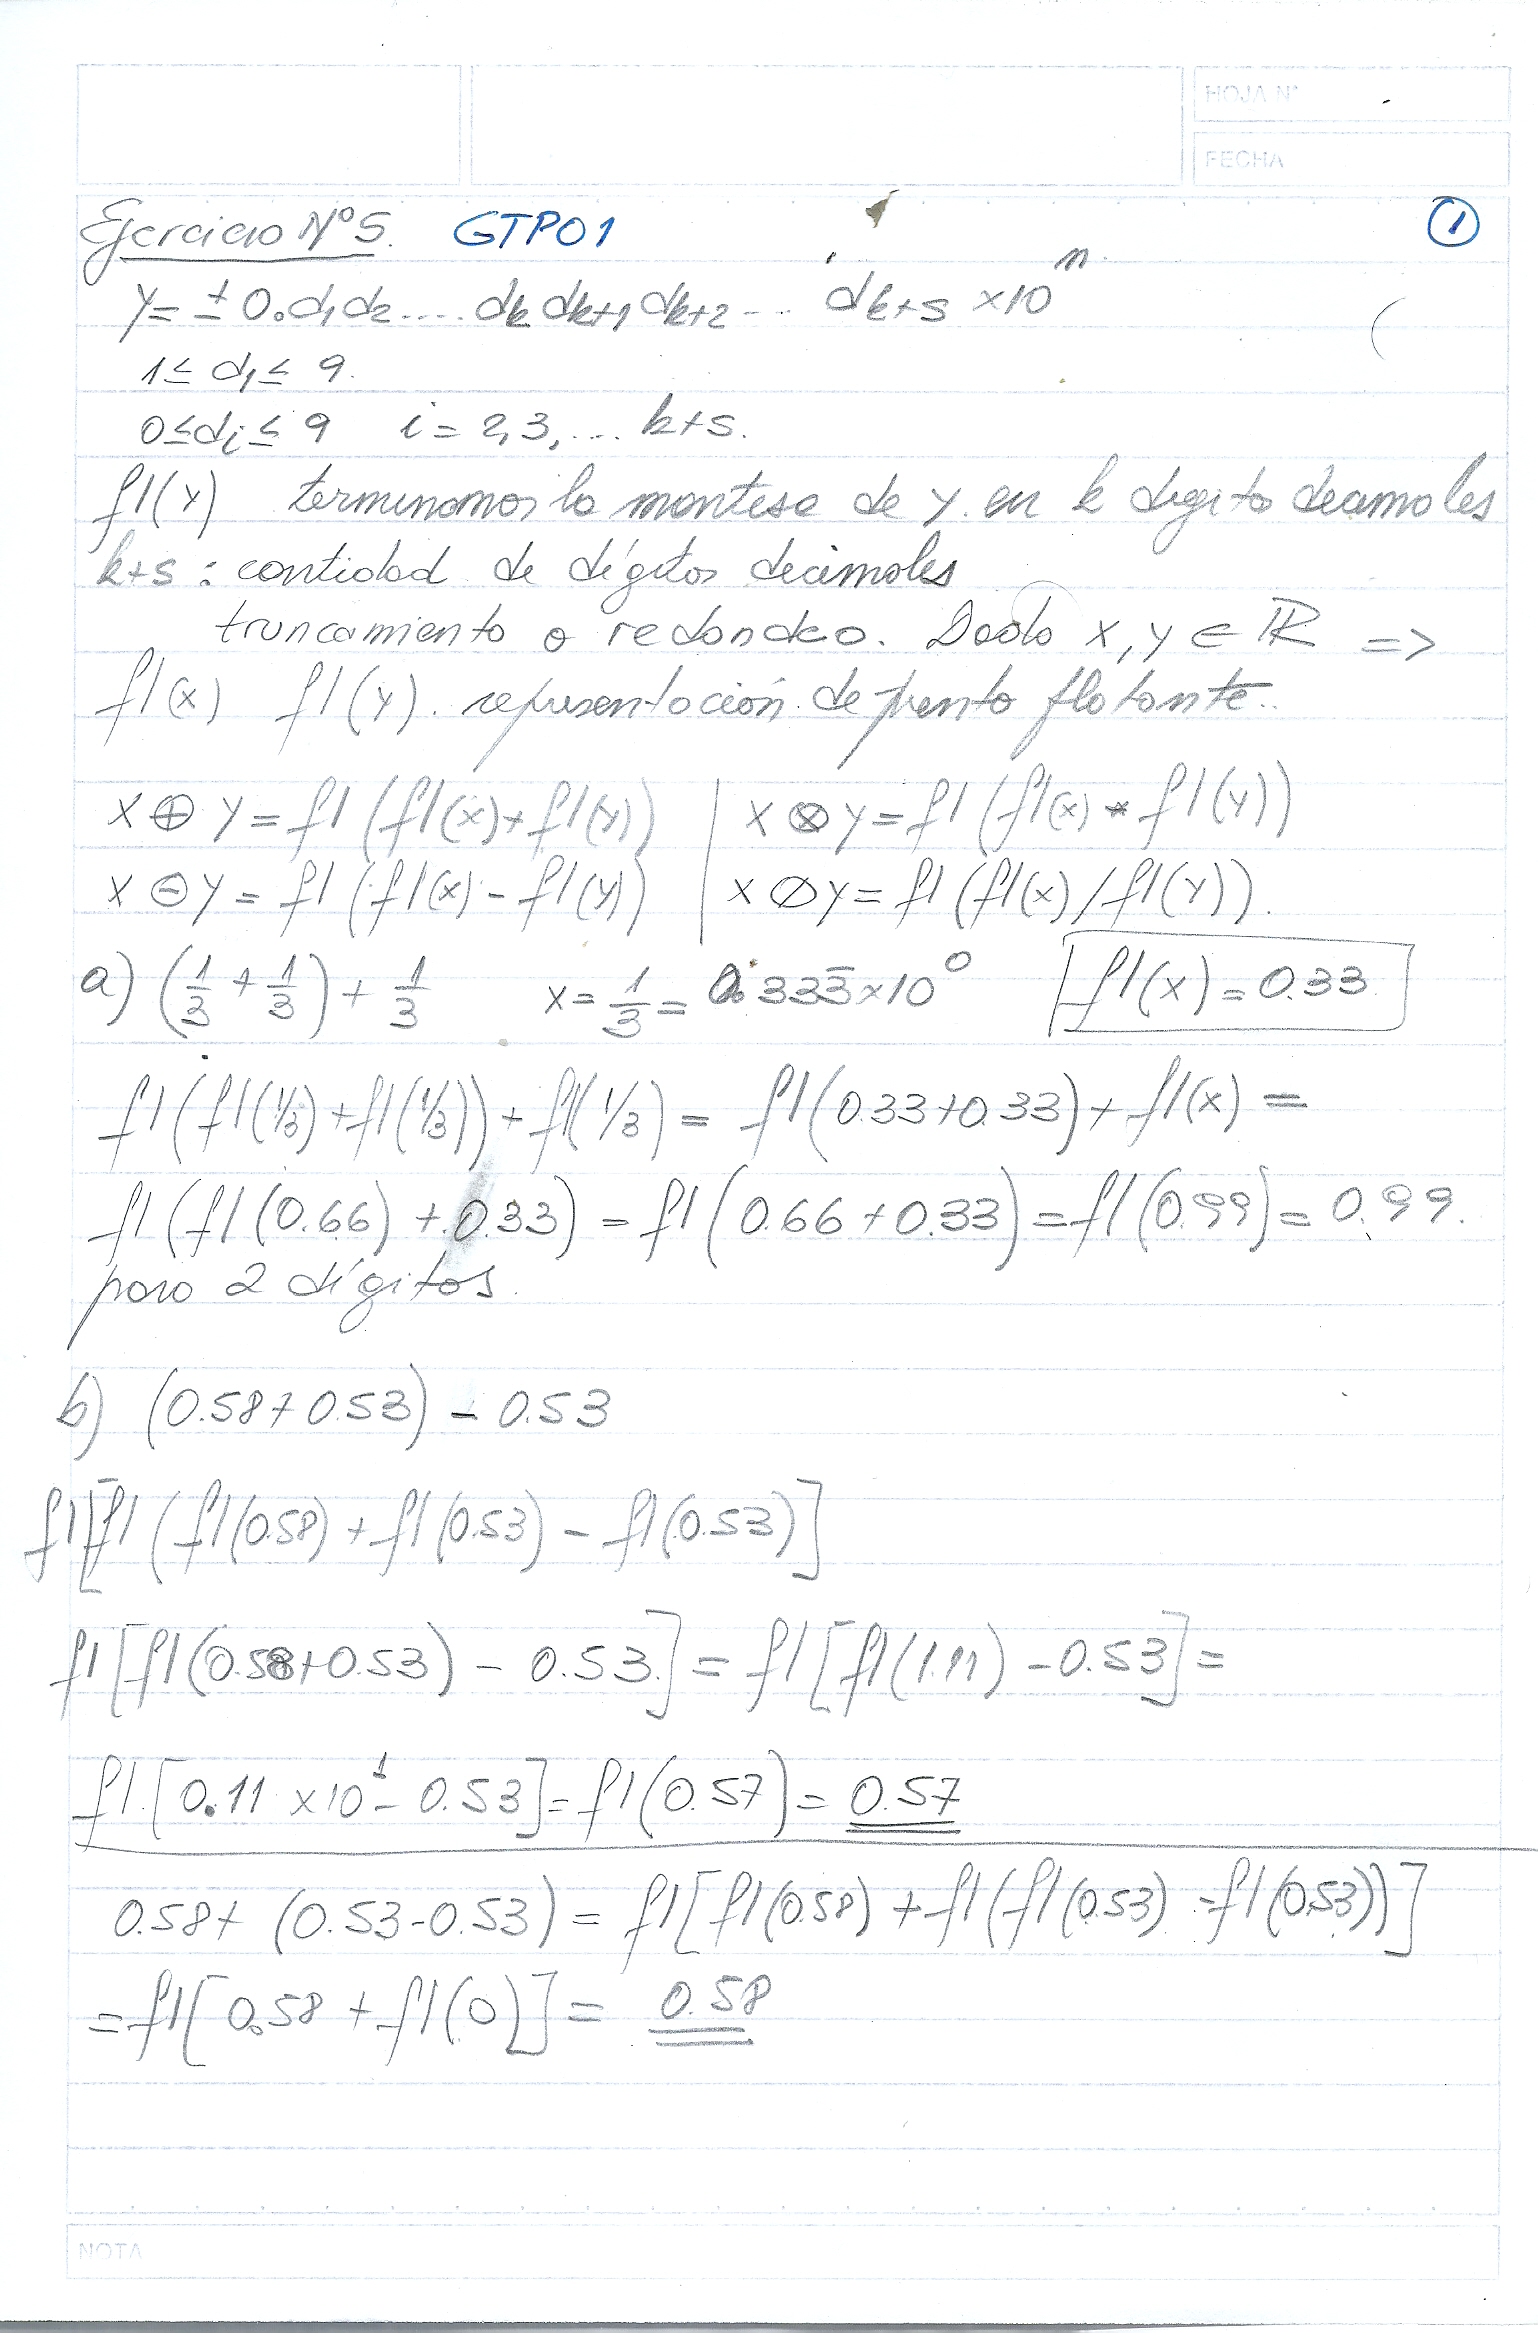 HOJA N°
FECHA
Ejercicio N° 5. GTP01 1
y = ± 0.d1d2....dk dk+1 dk+2 ... dk+s x10^n
1 ≤ d1 ≤ 9.
0 ≤ di ≤ 9 i = 2,3,... k+s.
fl(y) terminamos la mantisa de y en k dígito decimales
k+s : cantidad de dígitos decimales
truncamiento o redondeo. Dado x, y ∈ ℝ =>
fl(x) fl(y). representación de punto flotante..
x ⊕ y = fl (fl(x)+fl(y)) | x ⊗ y = fl (fl(x) * fl(y))
x ⊖ y = fl (fl(x) - fl(y)) | x ⊘ y = fl (fl(x) / fl(y)).
a) (1/3 + 1/3) + 1/3 x = 1/3 = 0.333̄ x10^0 fl(x) = 0.33
fl (fl(1/3) + fl(1/3)) + fl(1/3) = fl (0.33+0.33) + fl(x) =
fl (fl (0.66) + 0.33) = fl (0.66 + 0.33) = fl (0.99) = 0.99.
para 2 dígitos.
b) (0.58 + 0.53) - 0.53
fl [fl (fl(0.58) + fl (0.53) - fl(0.53)]
fl [fl (0.58+0.53) - 0.53.] = fl [fl(1.11) - 0.53] =
fl. [0.11 x10^1 - 0.53] = fl (0.57) = 0.57
0.58+ (0.53-0.53) = fl [fl(0.58) + fl (fl (0.53) - fl (0.53))]
= fl [0.58 + fl (0)] = 0.58
NOTA